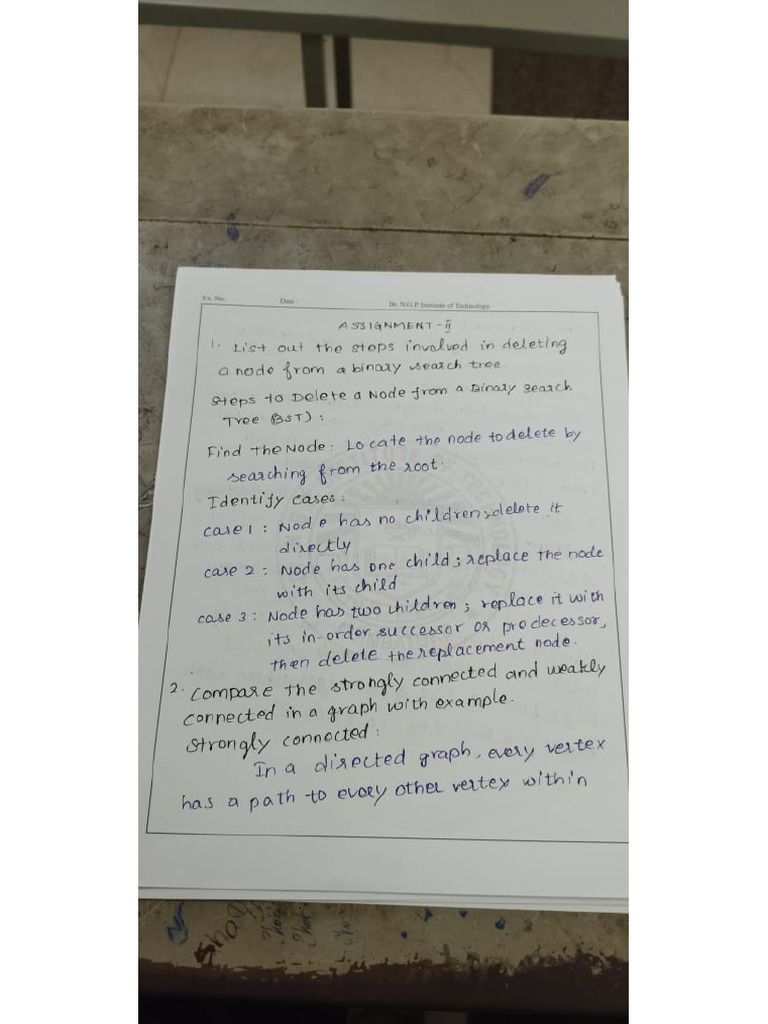 Ex. No. Date : Dr. N.G.P Institute of Technology
ASSIGNMENT - II
1. List out the steps involved in deleting
a node from a binary search tree.
Steps to Delete a Node from a Binary Search
Tree (BST) :
Find the Node : Locate the node to delete by
searching from the root.
Identify cases :
case 1 : Node has no children ; delete it
directly
case 2 : Node has one child ; replace the node
with its child
case 3 : Node has two children ; replace it with
its in-order successor or predecessor,
then delete the replacement node.
2. Compare the strongly connected and weakly
connected in a graph with example.
Strongly connected :
In a directed graph, every vertex
has a path to every other vertex within